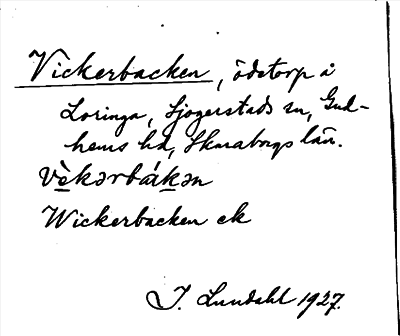 Vickerbacken, ödetorp å
Loringa, Sjogerstads sn, Gud-
hems hd, Skaraborgs län.
vèkərbákən
Wickerbacken ek
I. Lundahl 1927.